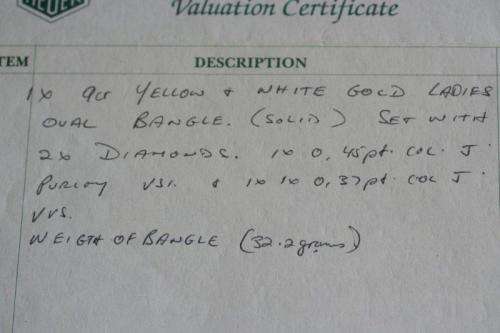 HEUER
Valuation Certificate
TEM DESCRIPTION
1x 9ct YELLOW + WHITE GOLD LADIES
OVAL BANGLE. (SOLID) SET WITH
2x DIAMONDS. 1x 0,45pt. COL. J
PURITY VS1. + 1x 1x 0,37pt. COL J.
VVS.
WEIGTH OF BANGLE (32.2grams)